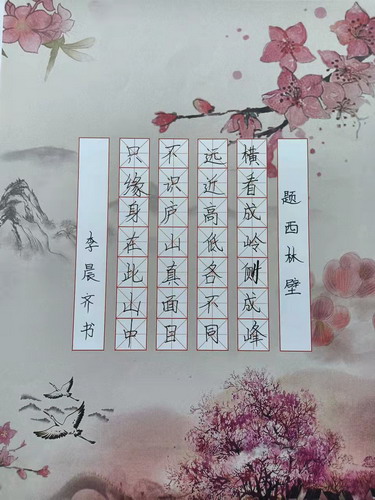 题西林壁
横看成岭侧成峰
远近高低各不同
不识庐山真面目
只缘身在此山中
李晨齐书